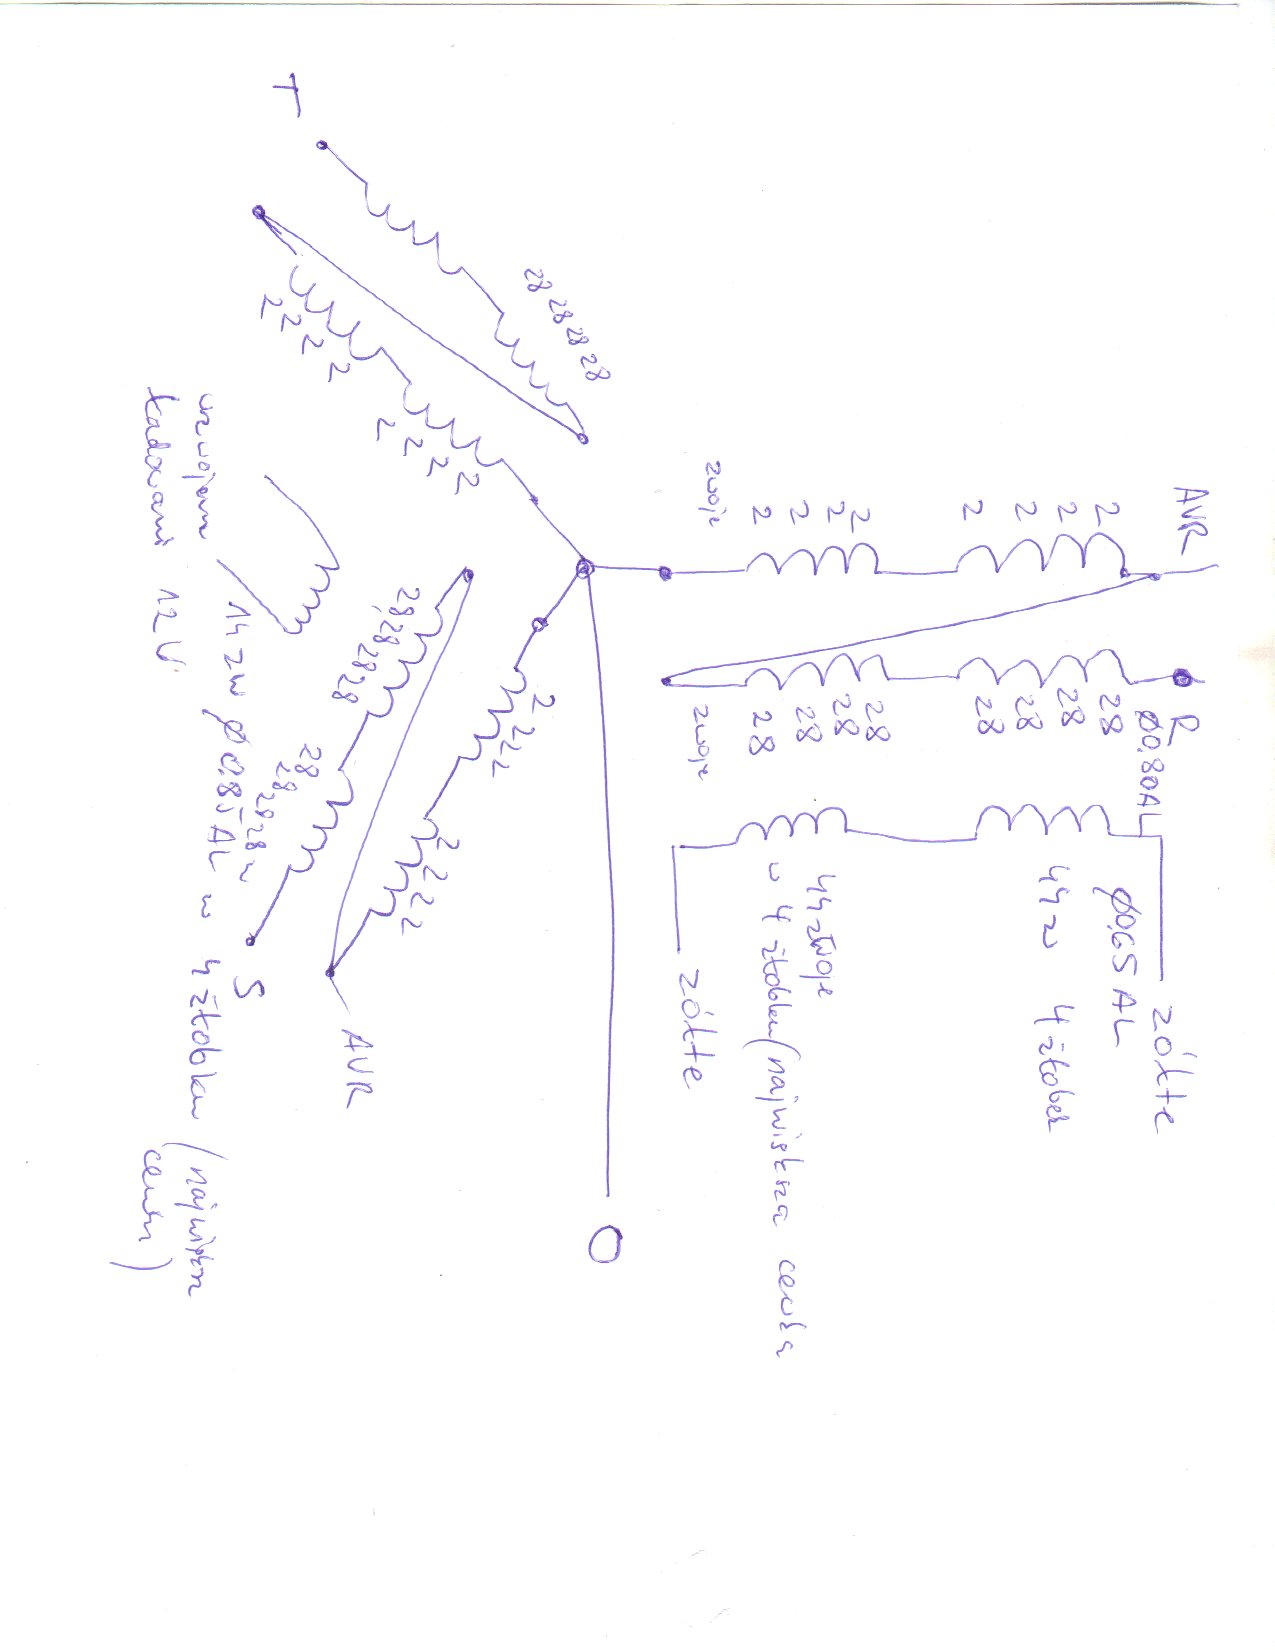 T
28 28 28 28
2 2 2 2
2 2 2 2
AVR
2 2 2 2 2 2 2 2
zwoje
R
28 28 28 28 28 28 28 28
zwoje
Ø0,80AL
Ø0,65 AL
44 zw 4 żłobek
44 zwoje
w 4 żłobku (największa cewka
żółte
żółte
O
2 2 2 2
2 2 2 2
AVR
28 28 28 28
28 28 28 28 w
S
14 zw Ø0,85 AL w 4 żłobku (najwięksa
cewka)
uzwojenie
ładowani 12V